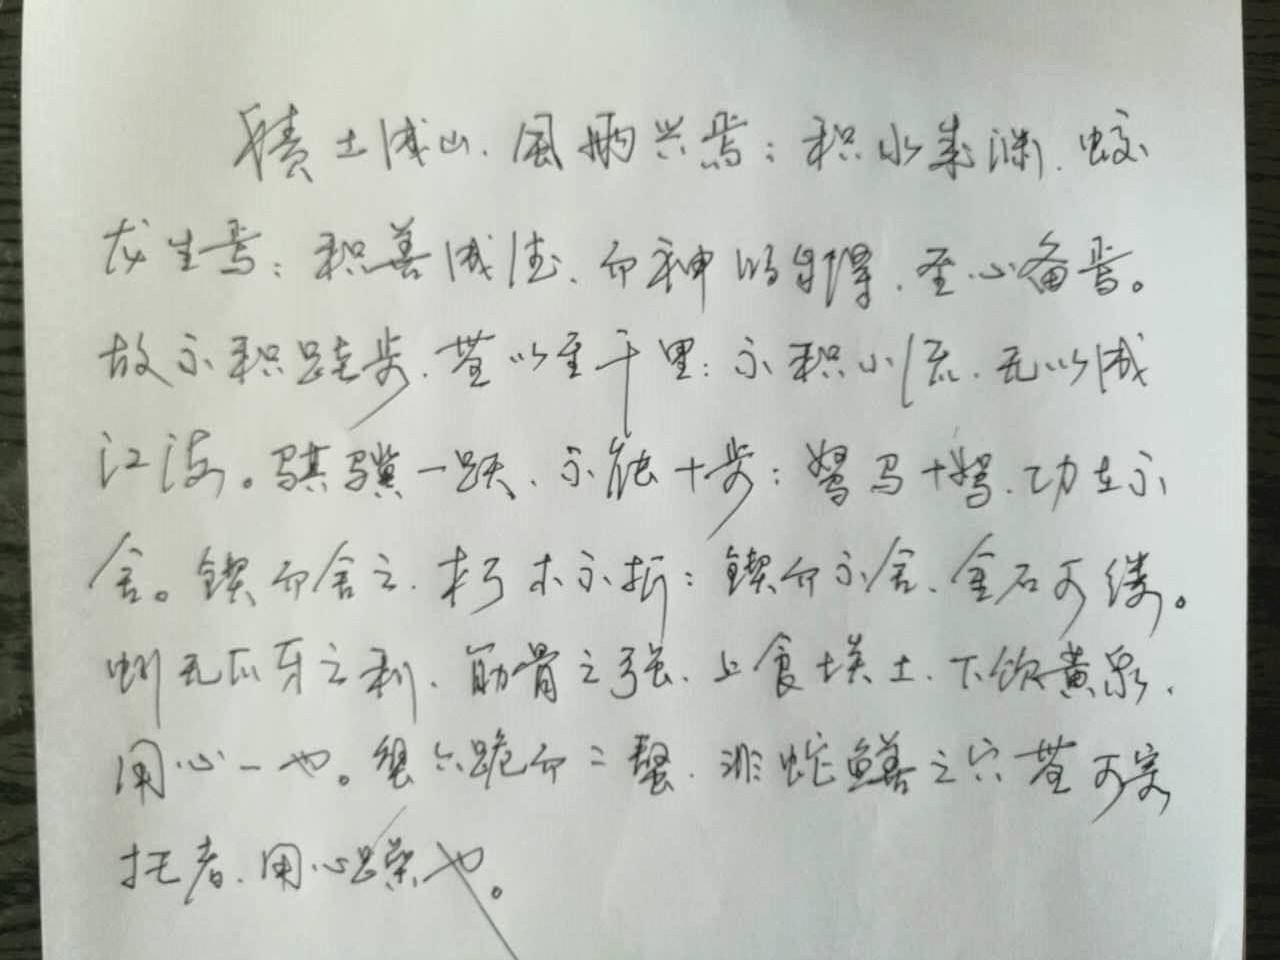 積土成山、風雨兴焉；积水成渊、蛟
龙生焉；积善成德、而神明自得、圣心备焉。
故不积跬步、無以至千里；不积小流、无以成
江海。骐骥一跃、不能十步；驽马十驾、功在不
舍。锲而舍之、朽木不折；锲而不舍、金石可镂。
蚓无爪牙之利、筋骨之强、上食埃土、下饮黄泉、
用心一也。蟹六跪而二螯、非蛇鳝之穴無可寄
托者、用心躁也。